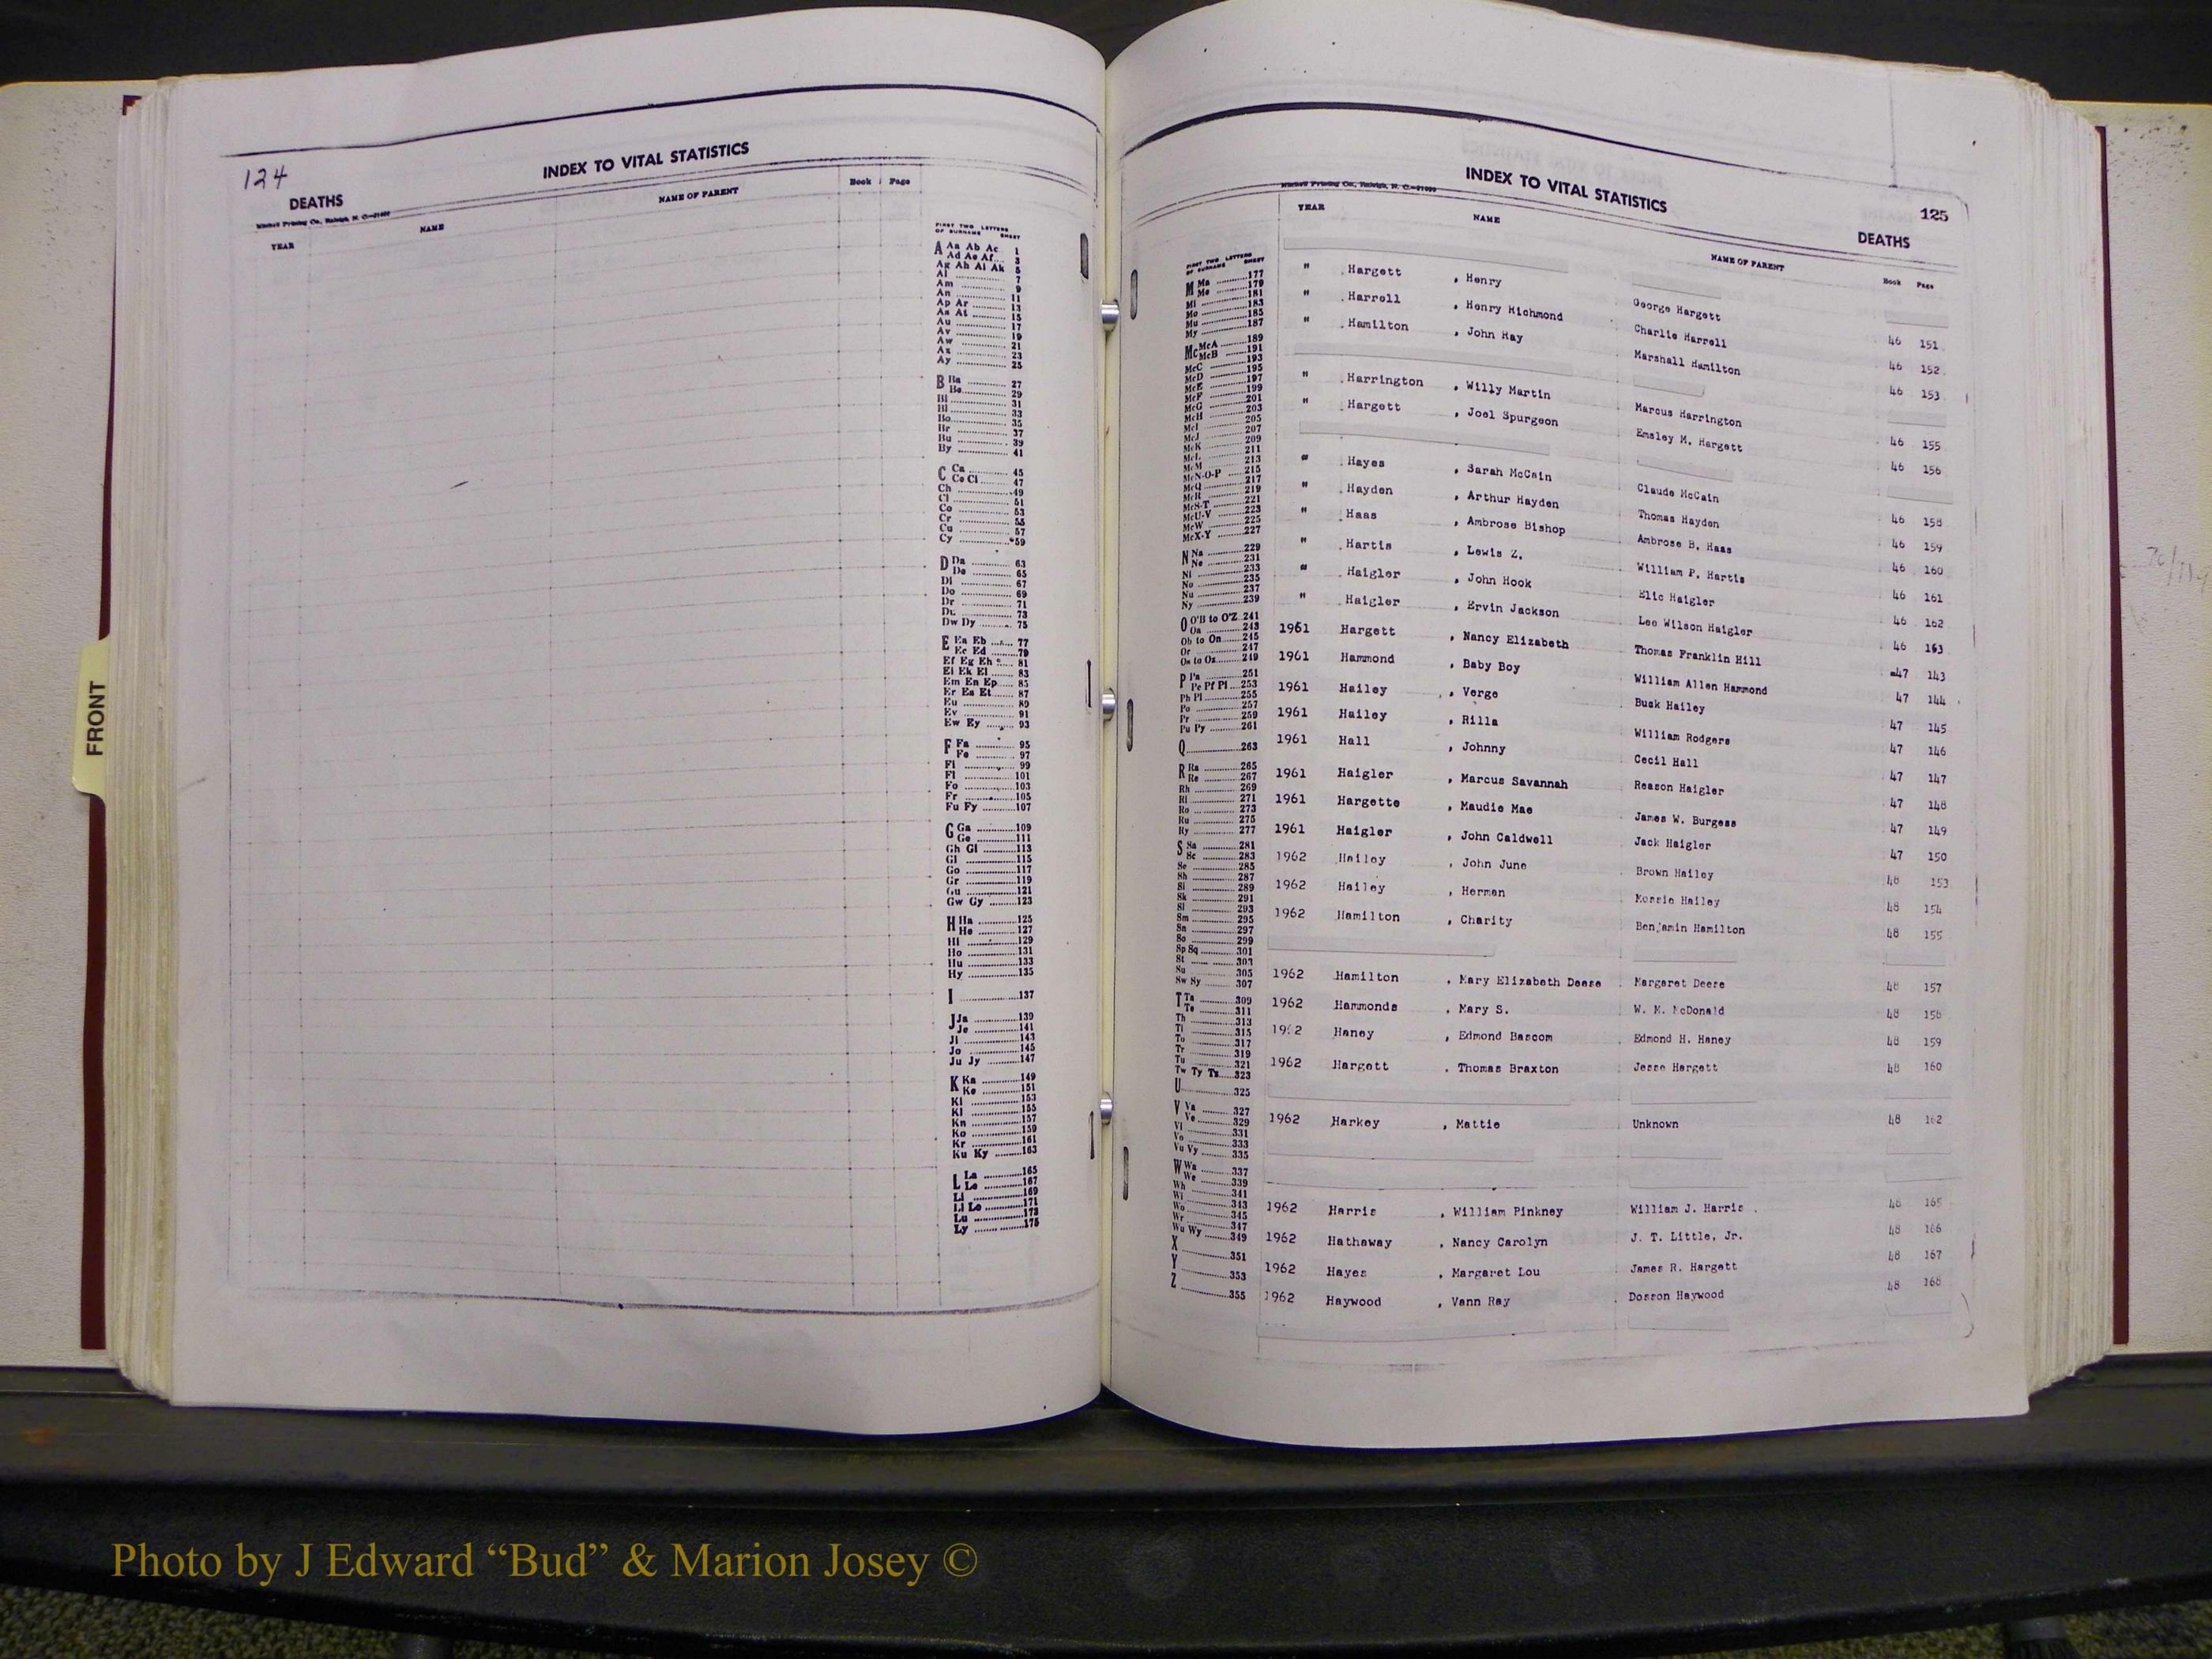 124
INDEX TO VITAL STATISTICS
DEATHS
Mitchell Printing Co., Raleigh, N. C.
YEAR NAME NAME OF PARENT Book Page
FIRST TWO LETTERS OF SURNAME SHEET
A Aa Ab Ac 1
Ad Ae Af 3
Ag Ah Ai Ak 5
Al 7
Am 9
An 11
Ap Ar 13
As At 15
Au 17
Av 19
Aw 21
Ax 23
Ay 25
B Ba 27
Be 29
Bi 31
Bl 33
Bo 35
Br 37
Bu 39
By 41
C Ca 45
Ce Ci 47
Ch 49
Cl 51
Co 53
Cr 55
Cu 57
Cy 59
D Da 63
De 65
Di 67
Do 69
Dr 71
Du 73
Dw Dy 75
E Ea Eb 77
Ec Ed 79
Ef Eg Eh 81
Ei Ek El 83
Em En Ep 85
Er Es Et 87
Eu 89
Ev 91
Ew Ey 93
F Fa 95
Fe 97
Fi 99
Fl 101
Fo 103
Fr 105
Fu Fy 107
G Ga 109
Ge 111
Gh Gi 113
Gl 115
Go 117
Gr 119
Gu 121
Gw Gy 123
H Ha 125
He 127
Hi 129
Ho 131
Hu 133
Hy 135
I 137
J Ja 139
Je 141
Ji 143
Jo 145
Ju Jy 147
K Ka 149
Ke 151
Ki 153
Kl 155
Kn 157
Ko 159
Kr 161
Ku Ky 163
L La 165
Le 167
Li 169
Ll Lo 171
Lu 173
Ly 175
INDEX TO VITAL STATISTICS
125
DEATHS
Mitchell Printing Co., Raleigh, N. C.
YEAR NAME NAME OF PARENT Book Page
FIRST TWO LETTERS OF SURNAME SHEET
M Ma 177
Me 179
Mi 181
Mo 183
Mu 185
My 187
Mc McA 189
McB 191
McC 193
McD 195
McE 197
McF 199
McG 201
McH 203
McI 205
McJ 207
McK 209
McL 211
McM 213
McN-O-P 215
McQ 217
McR 219
McS-T 221
McU-V 223
McW 225
McX-Y 227
N Na 229
Ne 231
Ni 233
No 235
Nu 237
Ny 239
O O'B to O'Z 241
Oa 243
Ob to On 245
Or 247
Os to Oz 249
P Pa 251
Pe Pf Pi 253
Ph Pl 255
Po 257
Pr 259
Pu Py 261
Q 263
R Ra 265
Re 267
Rh 269
Ri 271
Ro 273
Ru 275
Ry 277
S Sa 281
Sc 283
Se 285
Sh 287
Si 289
Sk 291
Sl 293
Sm 295
Sn 297
So 299
Sp Sq 301
St 303
Su 305
Sw Sy 307
T Ta 309
Te 311
Th 313
Ti 315
To 317
Tr 319
Tu 321
Tw Ty Tz 323
U 325
V Va 327
Ve 329
Vi 331
Vo 333
Vu Vy 335
W Wa 337
We 339
Wh 341
Wi 343
Wo 345
Wr 347
Wu Wy 349
X 351
Y 353
Z 355
" Hargett , Henry George Hargett 46 151
" Harrell , Henry Richmond Charlie Harrell 46 152
" Hamilton , John Ray Marshall Hamilton 46 153
" Harrington , Willy Martin Marcus Harrington 46 155
" Hargett , Joel Spurgeon Emsley M. Hargett 46 156
" Hayes , Sarah McCain Claude McCain 46 158
" Hayden , Arthur Hayden Thomas Hayden 46 159
" Haas , Ambrose Bishop Ambrose B. Haas 46 160
" Hartis , Lewis Z. William P. Hartis 46 161
" Haigler , John Hook Elic Haigler 46 162
" Haigler , Ervin Jackson Lee Wilson Haigler 46 163
1961 Hargett , Nancy Elizabeth Thomas Franklin Hill 47 143
1961 Hammond , Baby Boy William Allen Hammond 47 144
1961 Hailey , Verge Busk Hailey 47 145
1961 Hailey , Rilla William Rodgers 47 146
1961 Hall , Johnny Cecil Hall 47 147
1961 Haigler , Marcus Savannah Reason Haigler 47 148
1961 Hargette , Maudie Mae James W. Burgess 47 149
1961 Haigler , John Caldwell Jack Haigler 47 150
1962 Hailey , John June Brown Hailey 48 153
1962 Hailey , Herman Mossie Hailey 48 154
1962 Hamilton , Charity Benjamin Hamilton 48 155
1962 Hamilton , Mary Elizabeth Deese Margaret Deese 48 157
1962 Hammonds , Mary S. W. M. McDonald 48 158
1962 Haney , Edmond Bascom Edmond H. Haney 48 159
1962 Hargett , Thomas Braxton Jesse Hargett 48 160
1962 Harkey , Mattie Unknown 48 162
1962 Harris , William Pinkney William J. Harris 48 165
1962 Hathaway , Nancy Carolyn J. T. Little, Jr. 48 166
1962 Hayes , Margaret Lou James R. Hargett 48 167
1962 Haywood , Vann Ray Dosson Haywood 48 168
FRONT
Photo by J Edward “Bud” & Marion Josey ©